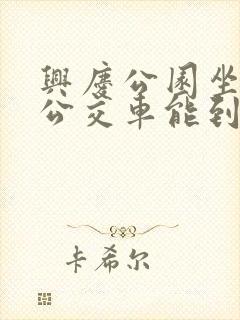 興慶公園坐
公交車能到
卡希尔